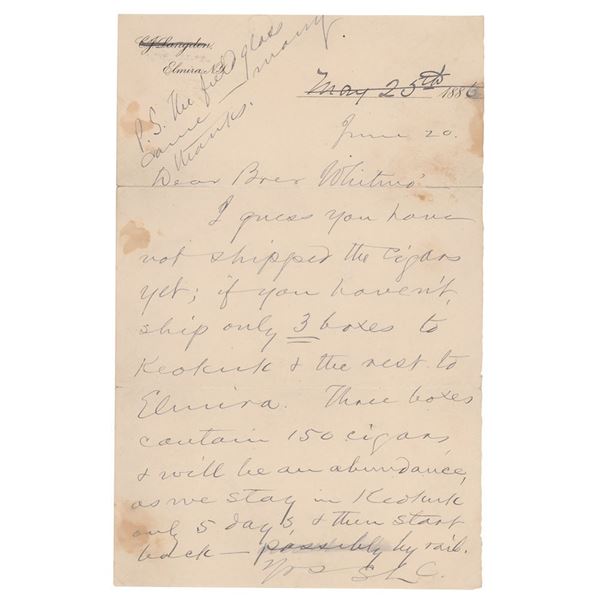 C J Langdon,
Elmira N.Y.
May 25th 1886
June 20.
P.S. The field glass
came — many
thanks.
Dear Brer Whitmo'—
I guess you have
not shipped the cigars
yet; if you haven't,
ship only 3 boxes to
Keokuk & the rest to
Elmira. Three boxes
contain 150 cigars
& will be an abundance,
as we stay in Keokuk
only 5 days, & then start
back — possibly by rail.
Yrs SLC.